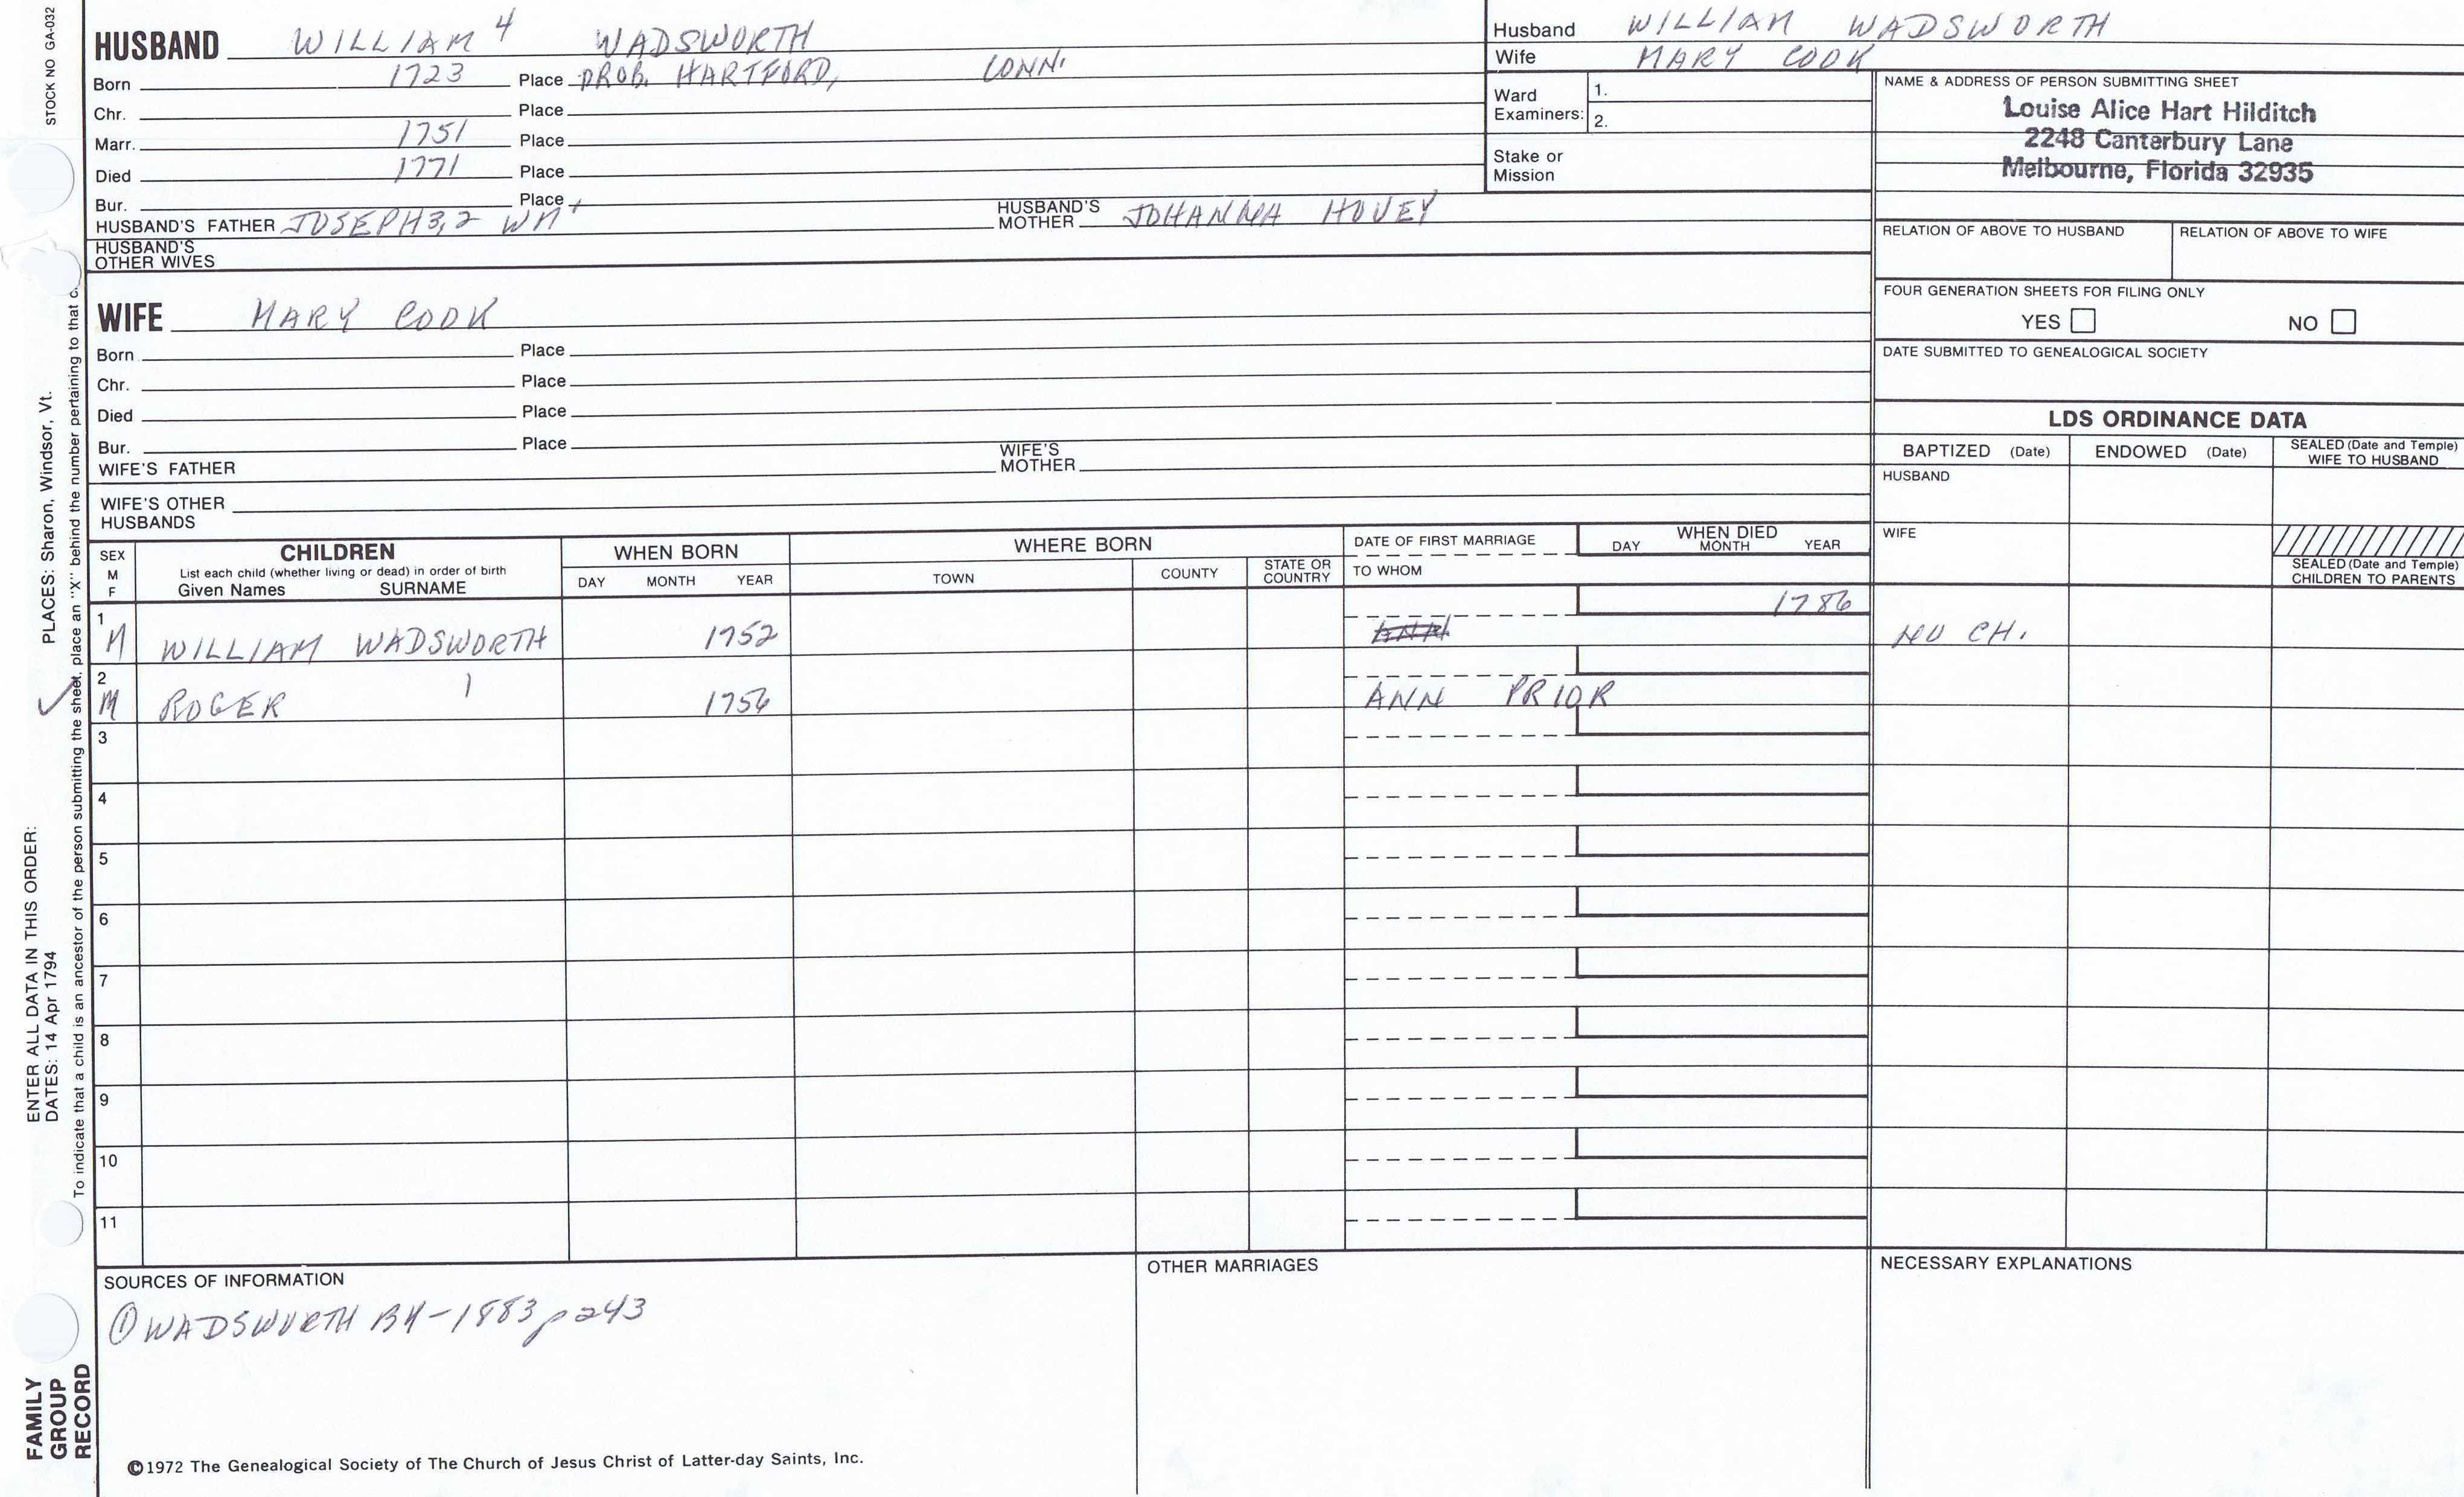 STOCK NO GA-032
PLACES: Sharon, Windsor, Vt.
ENTER ALL DATA IN THIS ORDER:
DATES: 14 Apr 1794
To indicate that a child is an ancestor of the person submitting the sheet, place an "X" behind the number pertaining to that c
FAMILY
GROUP
RECORD
HUSBAND WILLIAM 4 WADSWORTH
Born 1723 Place PROB. HARTFORD, CONN.
Chr. Place
Marr. 1751 Place
Died 1771 Place
Bur. Place
HUSBAND'S FATHER JOSEPH 3,2 WM 1 HUSBAND'S MOTHER JOHANNA HOVEY
HUSBAND'S
OTHER WIVES
WIFE MARY COOK
Born Place
Chr. Place
Died Place
Bur. Place
WIFE'S FATHER WIFE'S MOTHER
WIFE'S OTHER
HUSBANDS
Husband WILLIAM WADSWORTH
Wife MARY COOK
Ward
Examiners:
1.
2.
Stake or
Mission
NAME & ADDRESS OF PERSON SUBMITTING SHEET
Louise Alice Hart Hilditch
2248 Canterbury Lane
Melbourne, Florida 32935
RELATION OF ABOVE TO HUSBAND RELATION OF ABOVE TO WIFE
FOUR GENERATION SHEETS FOR FILING ONLY
YES NO
DATE SUBMITTED TO GENEALOGICAL SOCIETY
LDS ORDINANCE DATA
BAPTIZED (Date) ENDOWED (Date) SEALED (Date and Temple)
WIFE TO HUSBAND
HUSBAND
WIFE
SEALED (Date and Temple)
CHILDREN TO PARENTS
SEX
M
F
CHILDREN
List each child (whether living or dead) in order of birth
Given Names SURNAME
WHEN BORN
DAY MONTH YEAR
WHERE BORN
TOWN COUNTY STATE OR COUNTRY
DATE OF FIRST MARRIAGE
TO WHOM
WHEN DIED
DAY MONTH YEAR
1 1786
M WILLIAM WADSWORTH 1752 ANN NO CH.
2
M ROGER 1 1756 ANN PRIOR
3
4
5
6
7
8
9
10
11
SOURCES OF INFORMATION
① WADSWORTH BY-1883 p 243
OTHER MARRIAGES
NECESSARY EXPLANATIONS
©1972 The Genealogical Society of The Church of Jesus Christ of Latter-day Saints, Inc.